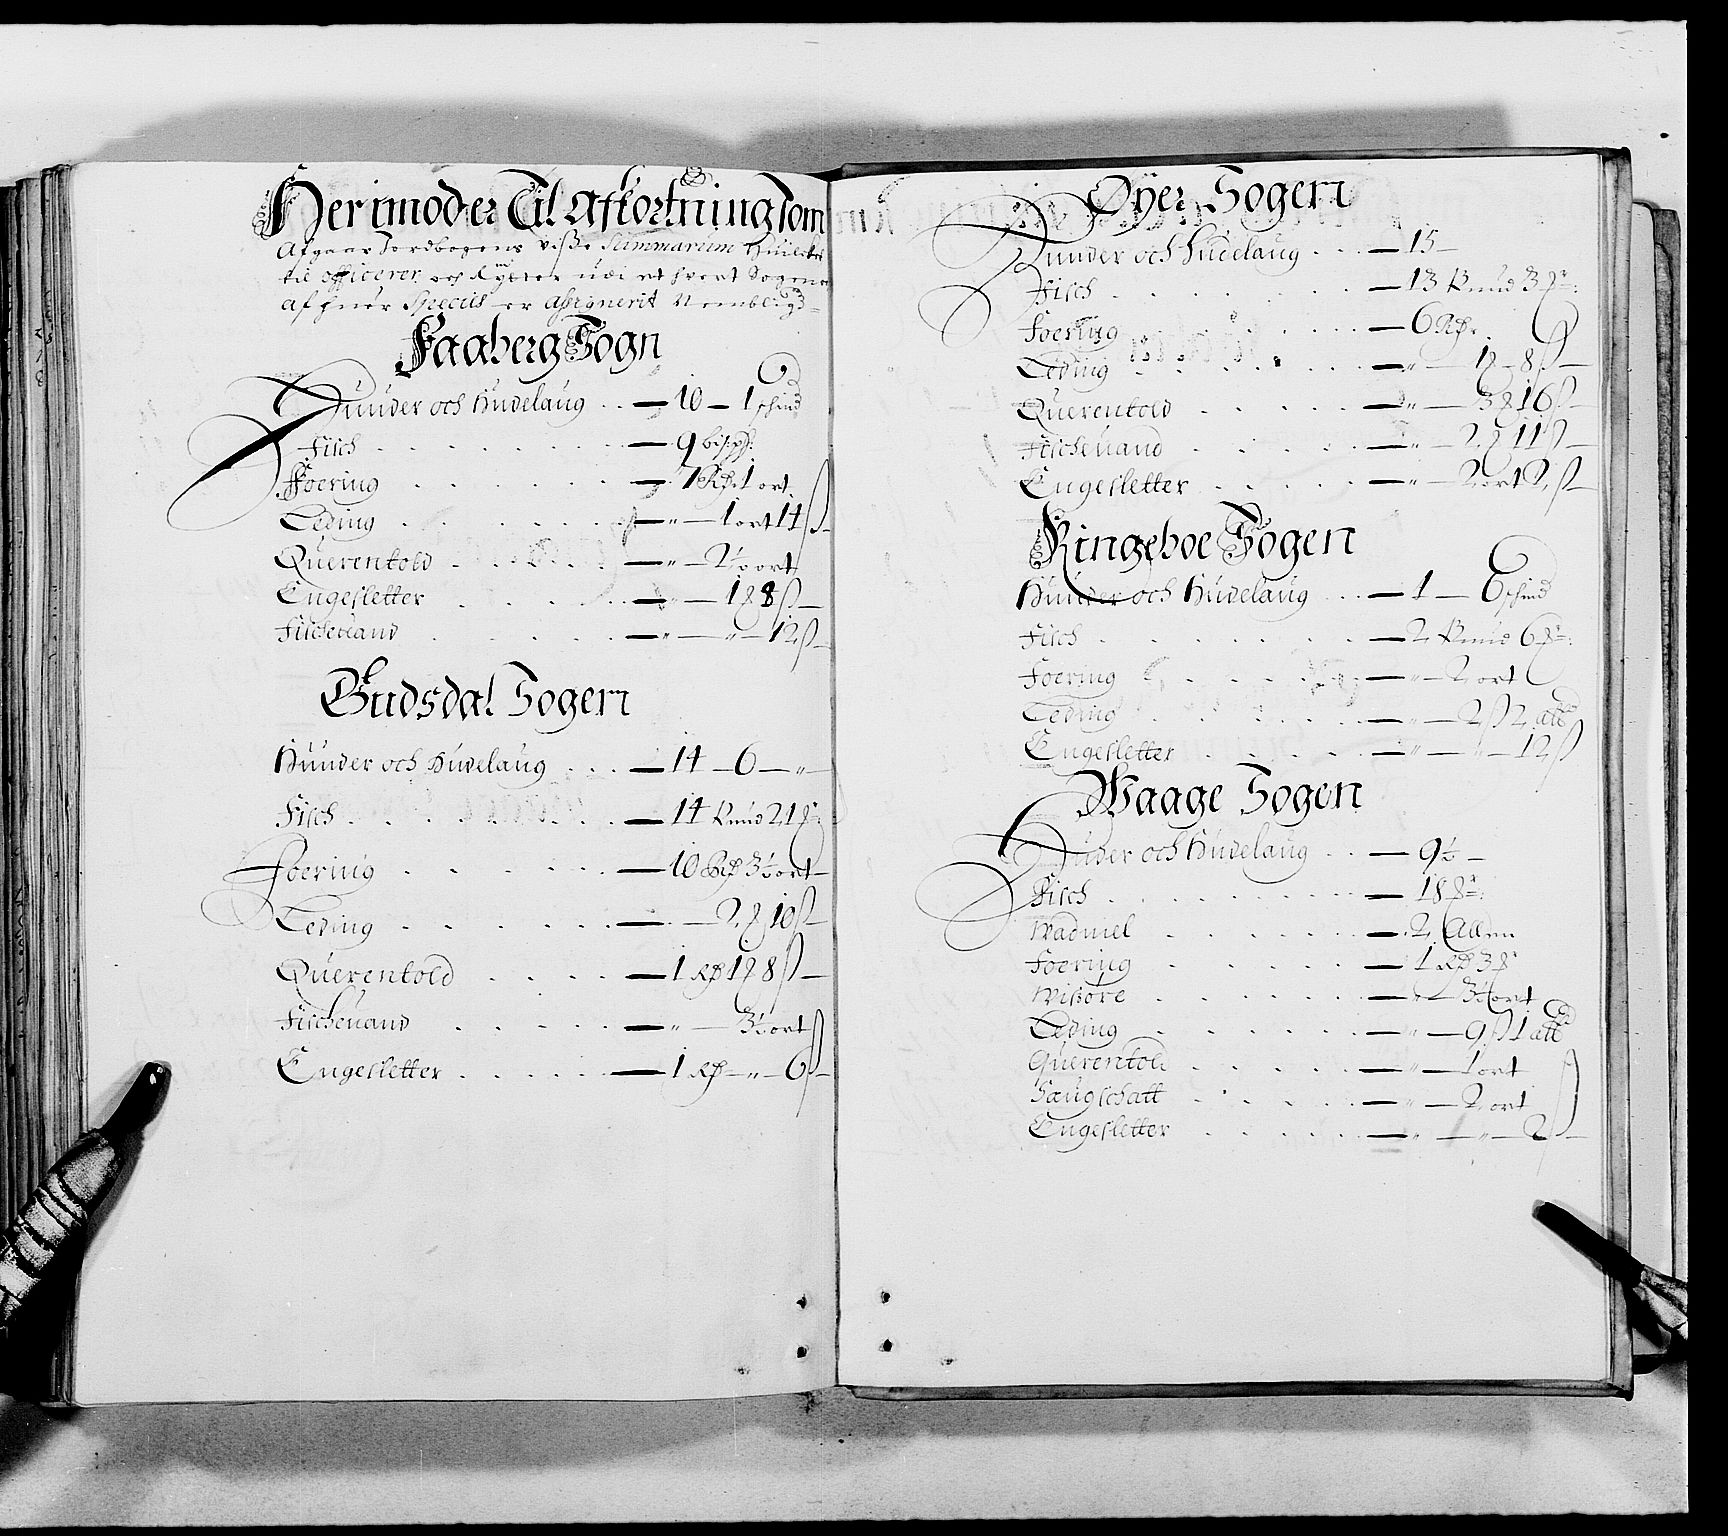 Her imoder Til Afkortning som
Afgaar Jordbogens visse Summarum huilcke
til officerer och Ryttere udi et hvert Sogen
af huer Speciis er assignerit Nemblig
Faaberg Sogn
Hunder och Hudelaug . . — 10 — 1 schind
Fisch — 9 bispp:
Foering — 1 Rd 1 ort
Leding — " — 1 ort 14 ß
Querentold — " — 2½ ort
Engesletter — " — 1 ℳ 8 ß —
Fischeuand — " — " — 12 ß
Gudsdal Sogen
Hunder och Hudelaug . . . — 14 — 6 — "
Fisch — 14 Knud 21 ℳ
Foering — 10 Rd 3½ ort —
Leding — 2 ℳ 10 ß —
Querentold — 1 Rd 1 ℳ 8 ß —
Fischeuand — " — 3½ ort
Engesletter — 1 Rd — " — 6 ß —
Øyer Sogen
Hunder och Hudelaug . . . — 15 —
Fisch — 13 Knud 3 ℳ
Foering — 6 Rd
Leding — " — 1 ℳ — 8 ß —
Querentold — " — 3 ℳ 16 ß —
Fischeuand — " — 2 ℳ 11 ß —
Engesletter — " — 2 ort 12 ß —
Ringeboe Sogen
Hunder och Hudelaug . . . — 1 — 6 schind
Fisch — 2 Knud 6 ℳ
Foering — " — 2 ort
Leding — " — 2 ß 2 alb
Engesletter — " — " — 12 ß
Waage Sogen
Huder och Hudelaug . . — 9½ —
Fisch — 18 ℳ
Wadmel — 2 Allen
Foering — 1 Rd 3 ℳ
Wisøre — " — 3½ ort
Leding — " — 9 ß 1 alb
Querentold — " — 1 ort
Saugschatt — " — 2 ort
Engesletter — " — " — 2 ß —